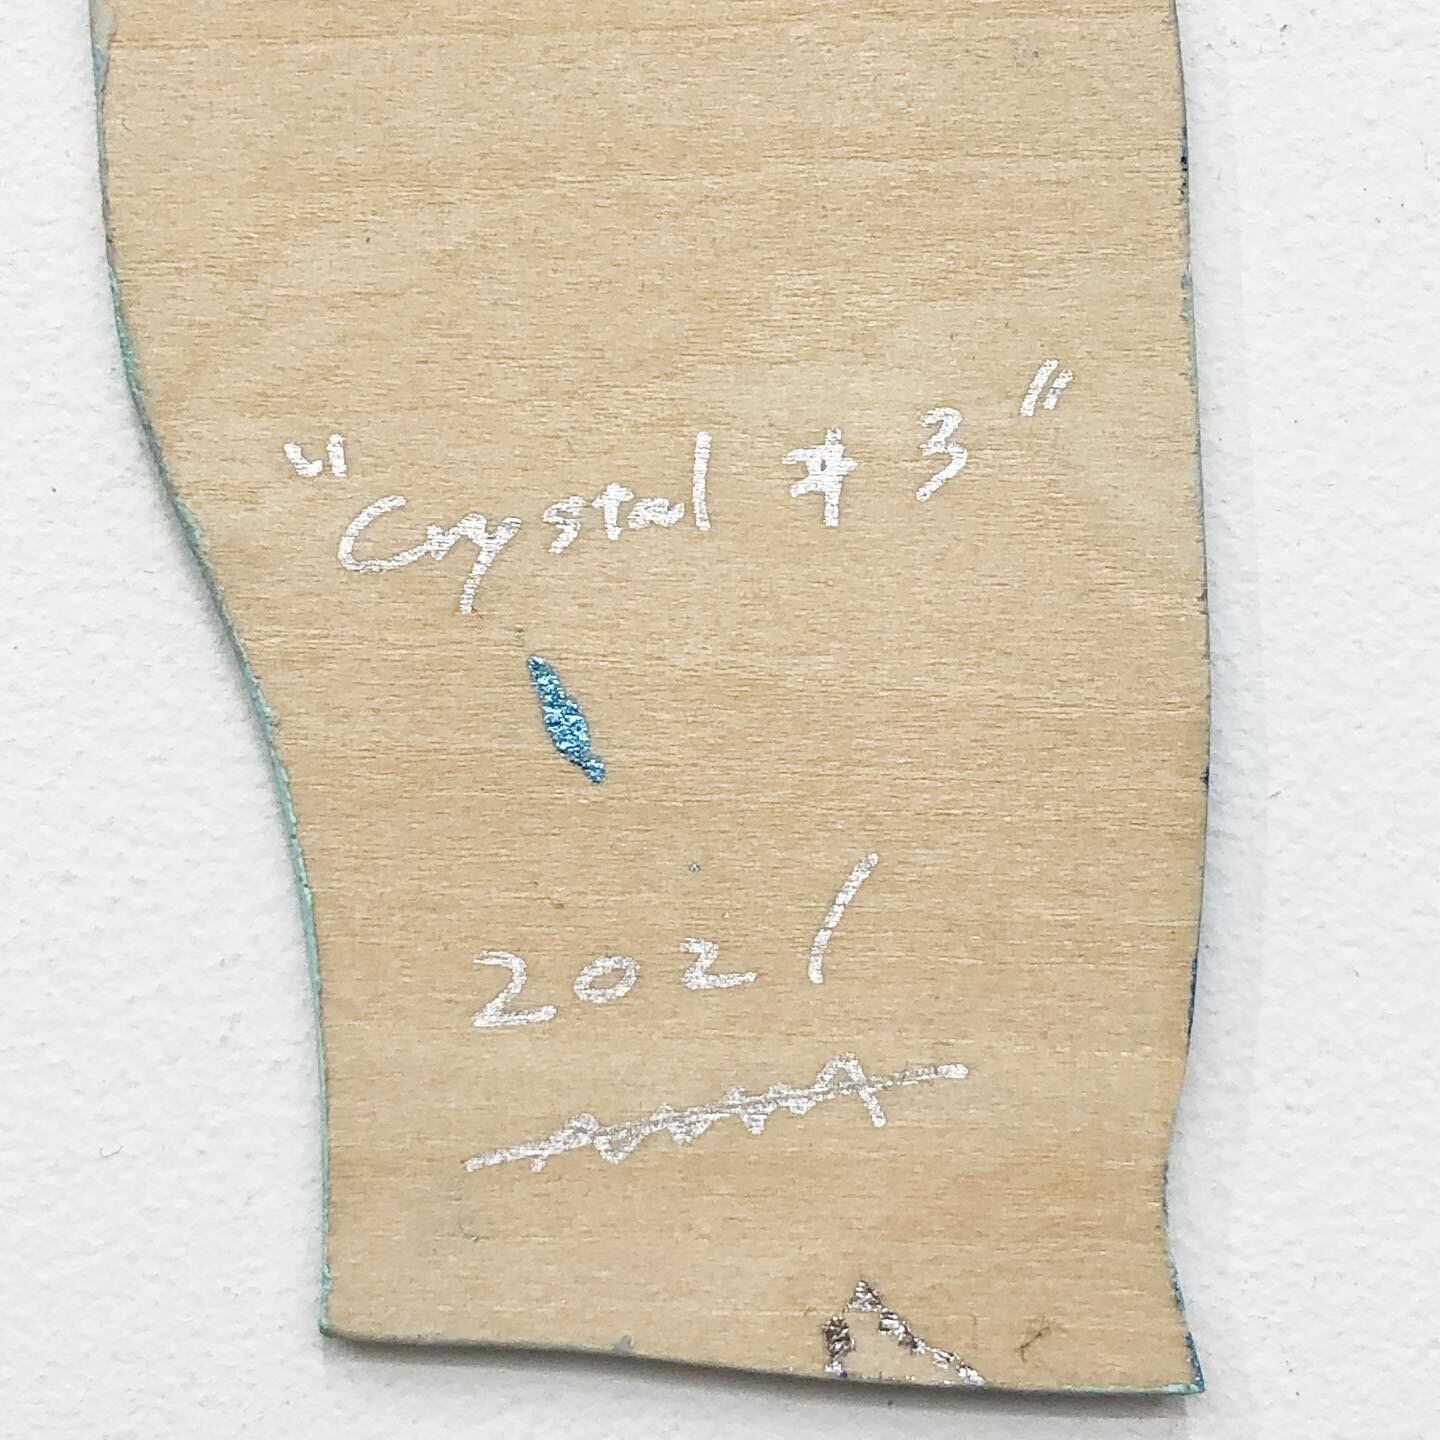 "Crystal #3"
2021